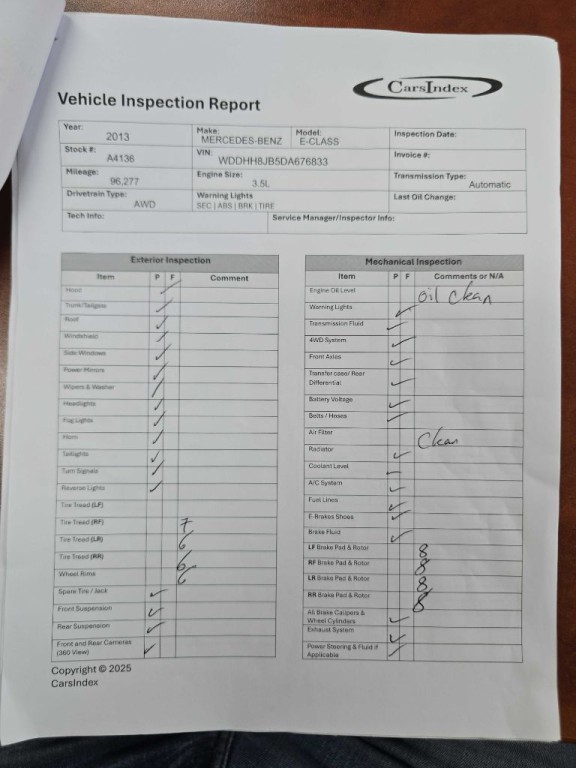 CarsIndex
Vehicle Inspection Report
Year: 2013 Make: MERCEDES-BENZ Model: E-CLASS Inspection Date:
Stock #: A4136 VIN: WDDHH8JB5DA676833 Invoice #:
Mileage: 96,277 Engine Size: 3.5L Transmission Type: Automatic
Drivetrain Type: AWD Warning Lights SEC | ABS | BRK | TIRE Last Oil Change:
Tech Info: Service Manager/Inspector Info:
Exterior Inspection
Item P F Comment
Hood ✓
Trunk/Tailgate ✓
Roof ✓
Windshield ✓
Side Windows ✓
Power Mirrors ✓
Wipers & Washer ✓
Headlights ✓
Fog Lights ✓
Horn ✓
Taillights ✓
Turn Signals ✓
Reverse Lights ✓
Tire Tread (LF)
Tire Tread (RF) 7
Tire Tread (LR) 6
Tire Tread (RR) 6
Wheel Rims 6
Spare Tire / Jack ✓
Front Suspension ✓
Rear Suspension ✓
Front and Rear Cameras
(360 View) ✓
Mechanical Inspection
Item P F Comments or N/A
Engine Oil Level Oil Clean
Warning Lights ✓
Transmission Fluid ✓
4WD System ✓
Front Axles ✓
Transfer case/ Rear
Differential ✓
Battery Voltage ✓
Belts / Hoses ✓
Air Filter Clean
Radiator ✓
Coolant Level ✓
A/C System ✓
Fuel Lines ✓
E-Brakes Shoes ✓
Brake Fluid ✓
LF Brake Pad & Rotor 8
RF Brake Pad & Rotor 8
LR Brake Pad & Rotor 8
RR Brake Pad & Rotor 8
All Brake Calipers &
Wheel Cylinders ✓
Exhaust System ✓
Power Steering & Fluid if
Applicable ✓
Copyright © 2025
CarsIndex